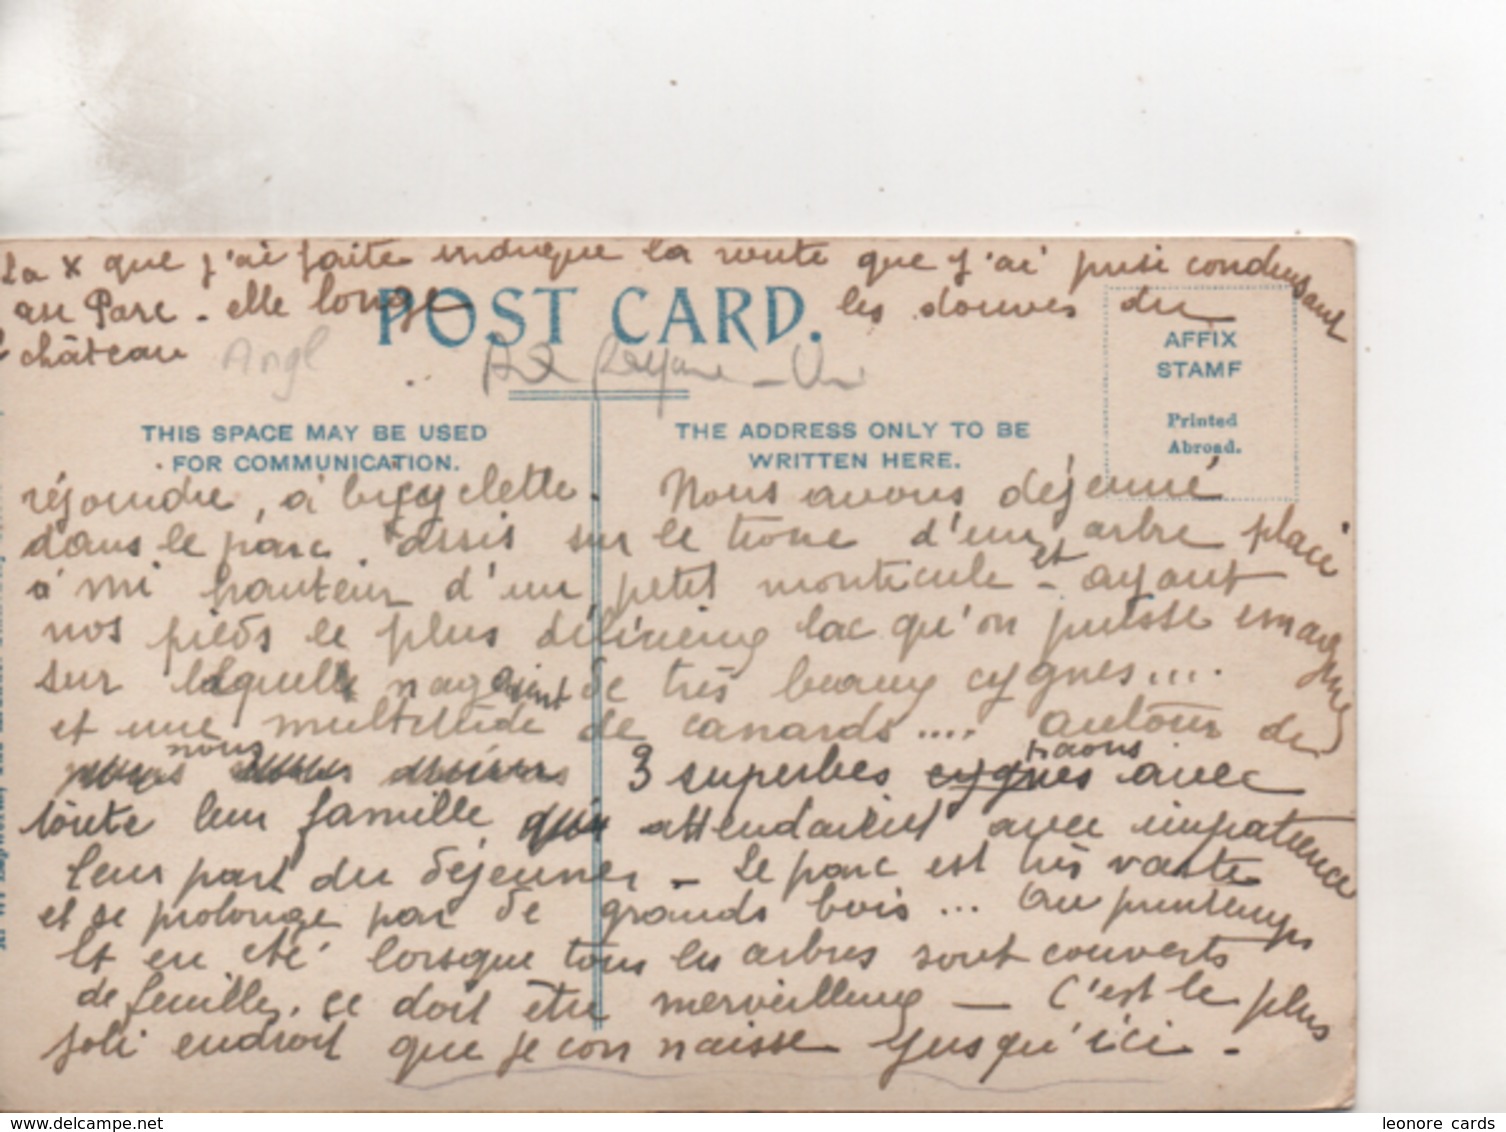 La x que j'ai faite indique la route que j'ai prise conduisant
au Parc - elle longe les douves du
château
Angl
POST CARD.
AFFIX
STAMP
Printed
Abroad.
THIS SPACE MAY BE USED
FOR COMMUNICATION.
THE ADDRESS ONLY TO BE
WRITTEN HERE.
réjoindre, à bicyclette. Nous avons déjeuné
dans le parc. assis sur le tronc d'un arbre placé
à mi hauteur d'un petit monticule - et ayant
nos pieds le plus délicieux lac qu'on puisse imaginer
sur lequel nageaient de très beaux cygnes....
et une multitude de canards.... autour de
nous 3 superbes cygnes paons avec
toute leur famille qui attendaient avec impatience
leur part du déjeuner - Le parc est très vaste
et se prolonge par de grands bois... Au printemps
et en été lorsque tous les arbres sont couverts
de feuilles, ce doit être merveilleux - C'est le plus
joli endroit que je connaisse jusqu'ici -
leonore cards